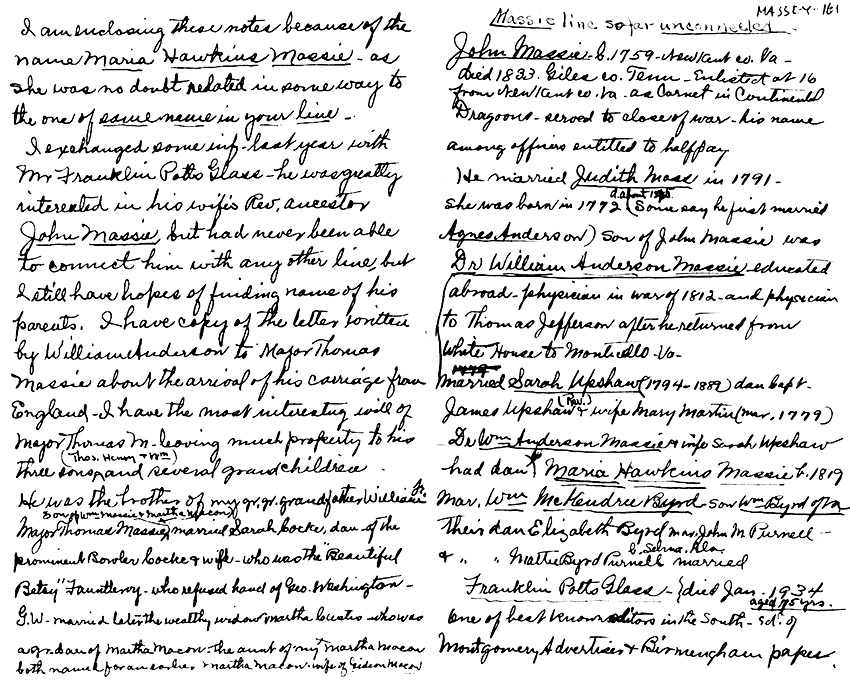 I am enclosing these notes because of the
name Maria Hawkins Massie - as
she was no doubt related in some way to
the one of same name in your line -
I exchanged some inf - last year with
Mr Franklin Potts Glass - he was greatly
interested in his wife's Rev. ancestor
John Massie, but had never been able
to connect him with any other line, but
I still have hopes of finding name of his
parents. I have copy of the letter written
by William Anderson to Major Thomas
Massie about the arrival of his carriage from
England - I have the most interesting will of
Major Thomas M - leaving much property to his
(Thos. Henry & Wm)
three sons, and several grandchildren.
He was the brother of my gr. gr. grandfather William Jr.
son of Wm Massie & Martha Macon
Major Thomas Massie married Sarah Cocke, dau. of the
prominent Bowler Cocke & wife - who was the "Beautiful
Betsy" Fauntleroy - who refused hand of Geo. Washington -
G.W. - married later the wealthy widow Martha Custis - who was
a gr. dau of Martha Macon - the aunt of my Martha Macon
both named for an earlier Martha Macon - wife of Gideon Macon
MASSEY - 161
Massie line so far unconnected.
John Massie - b. 1759 - New Kent co. Va -
died 1833. Giles co. Tenn - Enlisted at 16
from New Kent co. Va - as Cornet in Continental
Dragoons - served to close of war - his name
among officers entitled to half pay
He married Judith Moss in 1791 -
d. about 1840
she was born in 1772 (Some say he first married
Agnes Anderson) Son of John Massie was
Dr William Anderson Massie - educated
abroad - physician in war of 1812 - and physician
to Thomas Jefferson after he returned from
White House to Monticello - Va -
married Sarah Upshaw (1794 - 1882) dau Capt -
(Rev.)
James Upshaw & wife Mary Martin (mar. 1779)
Dr Wm Anderson Massie & wife Sarah Upshaw
had dau Maria Hawkins Massie b. 1819
Mar. Wm McKendree Byrd - son Wm Byrd of Va
Their dau Elizabeth Byrd mar. John M Purnell -
b. Selma, Ala.
& " " Mattie Byrd Purnell married
Franklin Potts Glass - } died Jan. 1934
aged 75 yrs.
One of best known editors in the South - ed. of
Montgomery Advertiser & Birmingham paper.